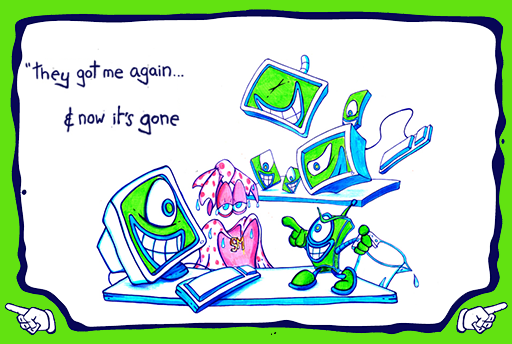 "they got me again...
& now it's gone